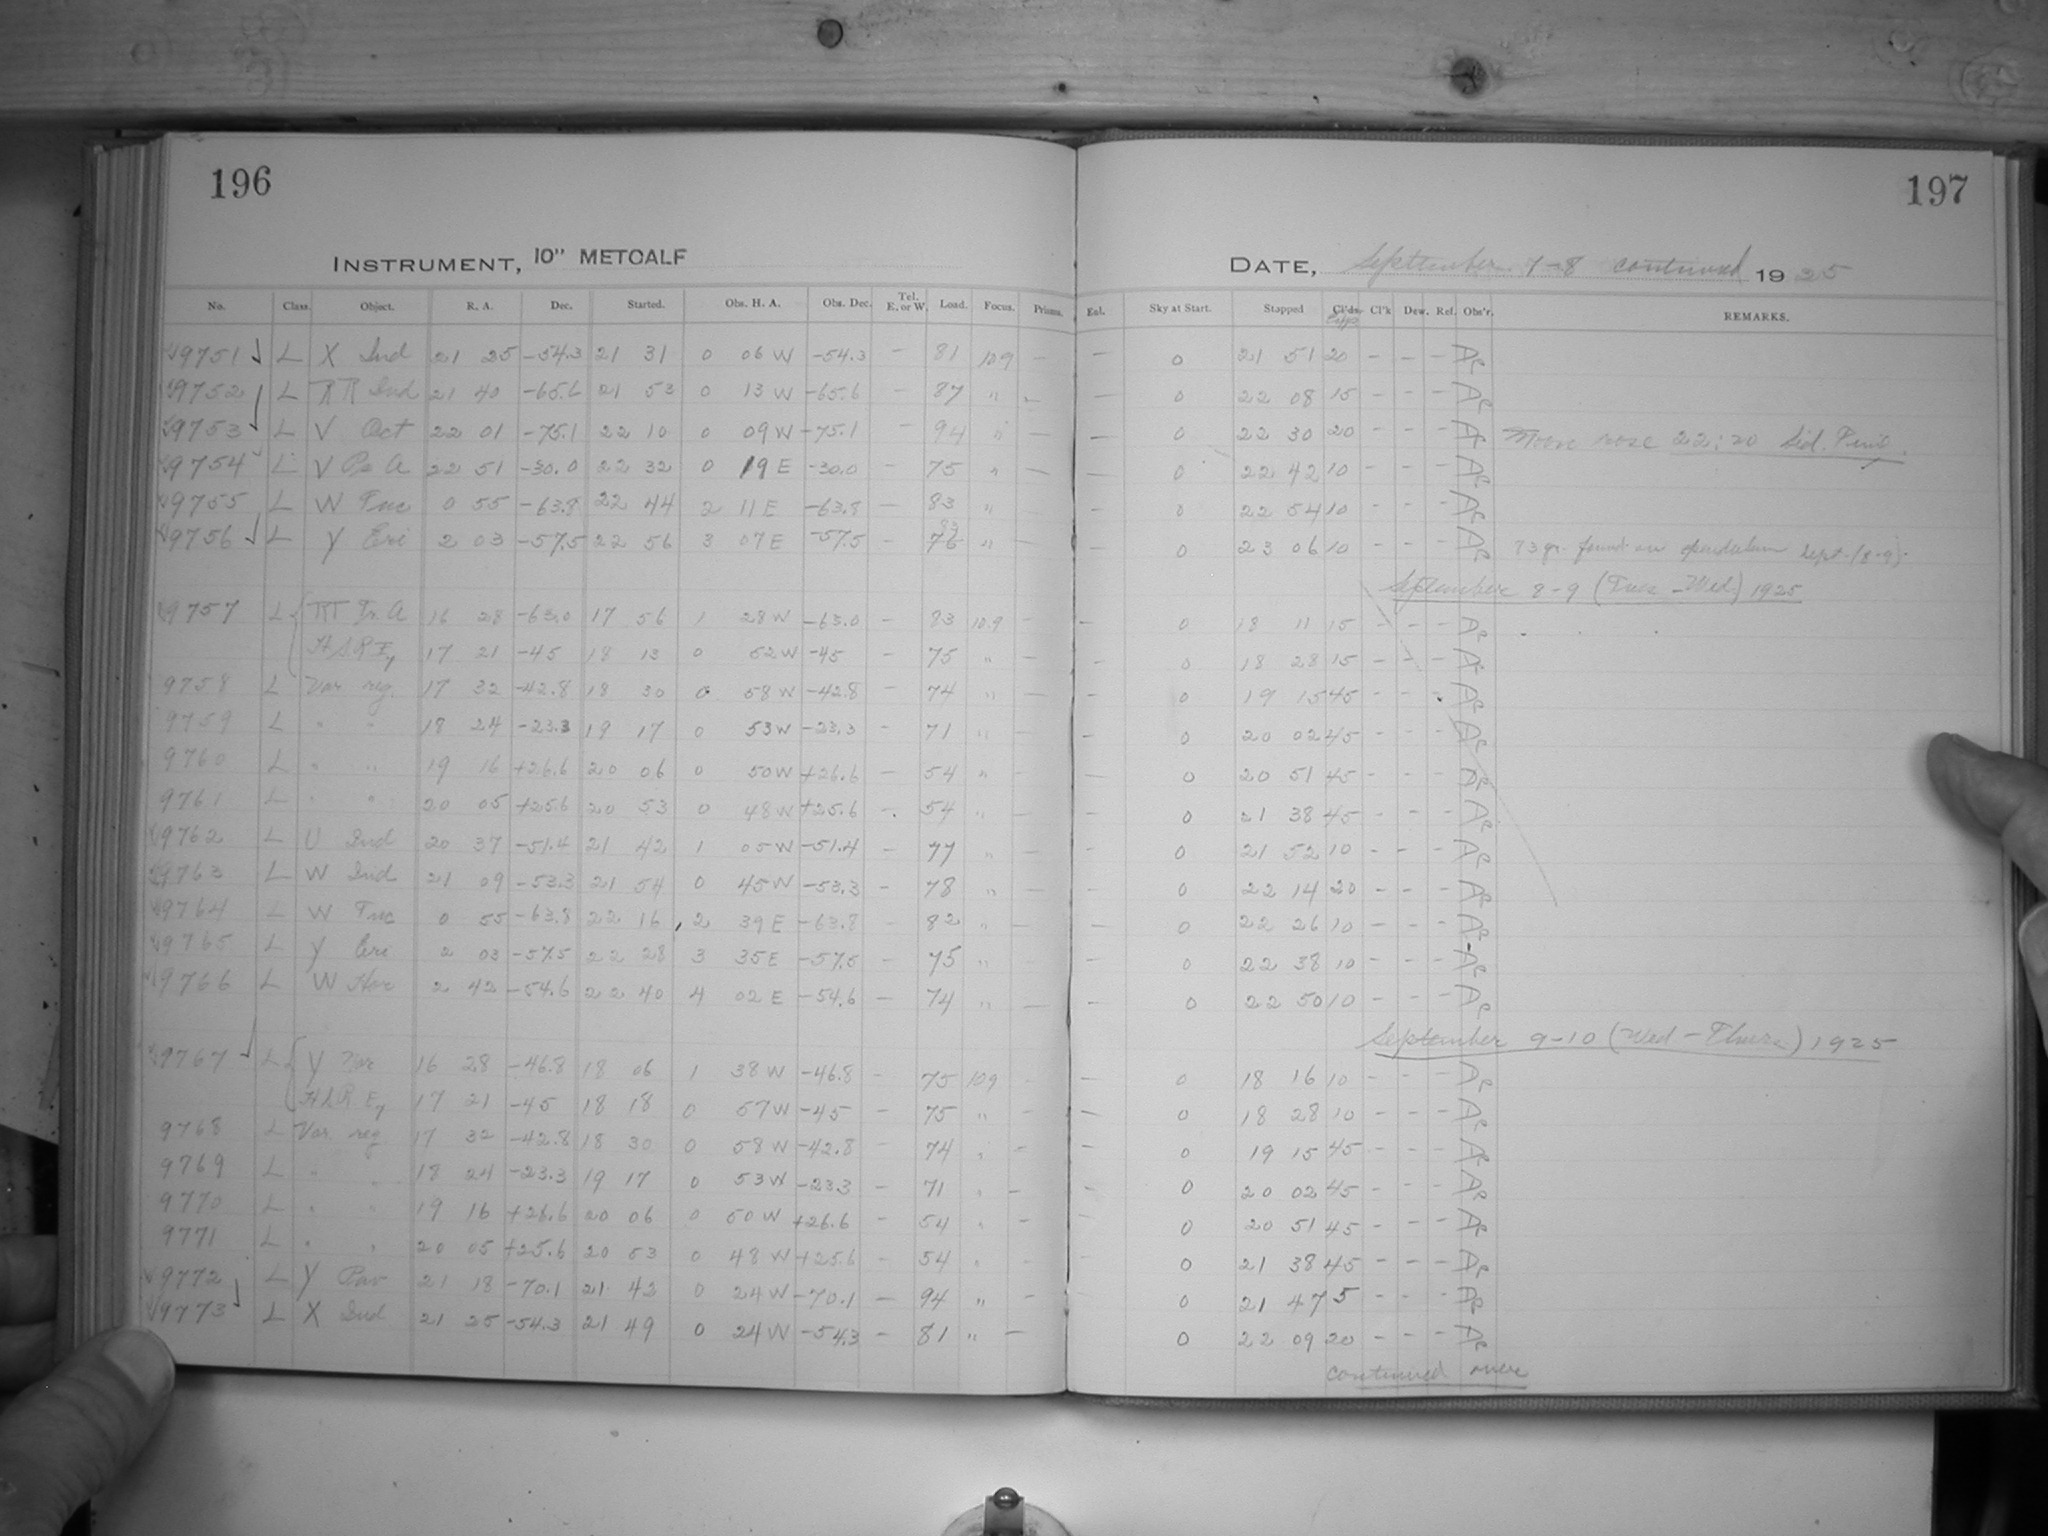 196
INSTRUMENT, 10" METCALF
No. Class. Object. R. A. Dec. Started. Obs. H. A. Obs. Dec. Tel. E. or W. Load. Focus. Prisms.
9751 L X Ind 21 25 -54.3 21 31 0 06 W -54.3 - 81 10.9 -
9752 L RR Ind 21 40 -65.6 21 53 0 13 W -65.6 - 87 " -
9753 L V Oct 22 01 -75.1 22 10 0 09 W -75.1 - 94 " -
9754 L V Ps A 22 51 -30.0 22 32 0 19 E -30.0 - 75 " -
9755 L W Tuc 0 55 -63.8 22 44 2 11 E -63.8 - 83 " -
9756 L Y Eri 2 03 -57.5 22 56 3 07 E -57.5 - 76 83 " -
9757 L RT Tr. A 16 28 -63.0 17 56 1 28 W -63.0 - 83 10.9 -
17 21 -45 18 13 0 52 W -45 - 75 " -
9758 L Var. reg. 17 32 -42.8 18 30 0 58 W -42.8 - 74 " -
9759 L " " 18 24 -23.3 19 17 0 53 W -23.3 - 71 " -
9760 L " " 19 16 +26.6 20 06 0 50 W +26.6 - 54 " -
9761 L " " 20 05 +25.6 20 53 0 48 W +25.6 - 54 " -
9762 L U Ind 20 37 -51.4 21 42 1 05 W -51.4 - 77 " -
9763 L W Ind 21 09 -53.3 21 54 0 45 W -53.3 - 78 " -
9764 L W Tuc 0 55 -63.8 22 16 2 39 E -63.8 - 82 " -
9765 L Y Eri 2 03 -57.5 22 28 3 35 E -57.5 - 75 " -
9766 L W Hor 2 42 -54.6 22 40 4 02 E -54.6 - 74 " -
9767 L Y Nor 16 28 -46.8 18 06 1 38 W -46.8 - 75 10.9 -
17 21 -45 18 18 0 57 W -45 - 75 " -
9768 L Var. reg 17 32 -42.8 18 30 0 58 W -42.8 - 74 " -
9769 L " " 18 24 -23.3 19 17 0 53 W -23.3 - 71 " -
9770 L " " 19 16 +26.6 20 06 0 50 W +26.6 - 54 " -
9771 L " " 20 05 +25.6 20 53 0 48 W +25.6 - 54 " -
9772 L Y Pav 21 18 -70.1 21 42 0 24 W -70.1 - 94 " -
9773 L X Ind 21 25 -54.3 21 49 0 24 W -54.3 - 81 " -
197
DATE, September 7-8 continued 1925
Enl. Sky at Start. Stopped Cl'ds. Cl'k Dew. Ref. Obs'r. REMARKS.
Exp.
- 0 21 51 20 - - -
- 0 22 08 15 - - -
- 0 22 30 20 - - - Moon rose 22:20 Sid. Time.
0 22 42 10 - - -
- 0 22 54 10 - - -
- 0 23 06 10 - - - 73 gr. found on pendulum Sept (8-9).
September 8-9 (Tues - Wed) 1925
- 0 18 11 15 - - -
- 0 18 28 15 - - -
- 0 19 15 45 - -
- 0 20 02 45 - - -
- 0 20 51 45 - - -
- 0 21 38 45 - - -
- 0 21 52 10 - - -
- 0 22 14 20 - - -
- 0 22 26 10 - - -
- 0 22 38 10 - - -
- 0 22 50 10 - - -
September 9-10 (Wed - Thurs) 1925
- 0 18 16 10 - - -
- 0 18 28 10 - - -
- 0 19 15 45 - - -
- 0 20 02 45 - - -
- 0 20 51 45 - - -
- 0 21 38 45 - - -
- 0 21 47 5 - - -
- 0 22 09 20 - - -
continued over